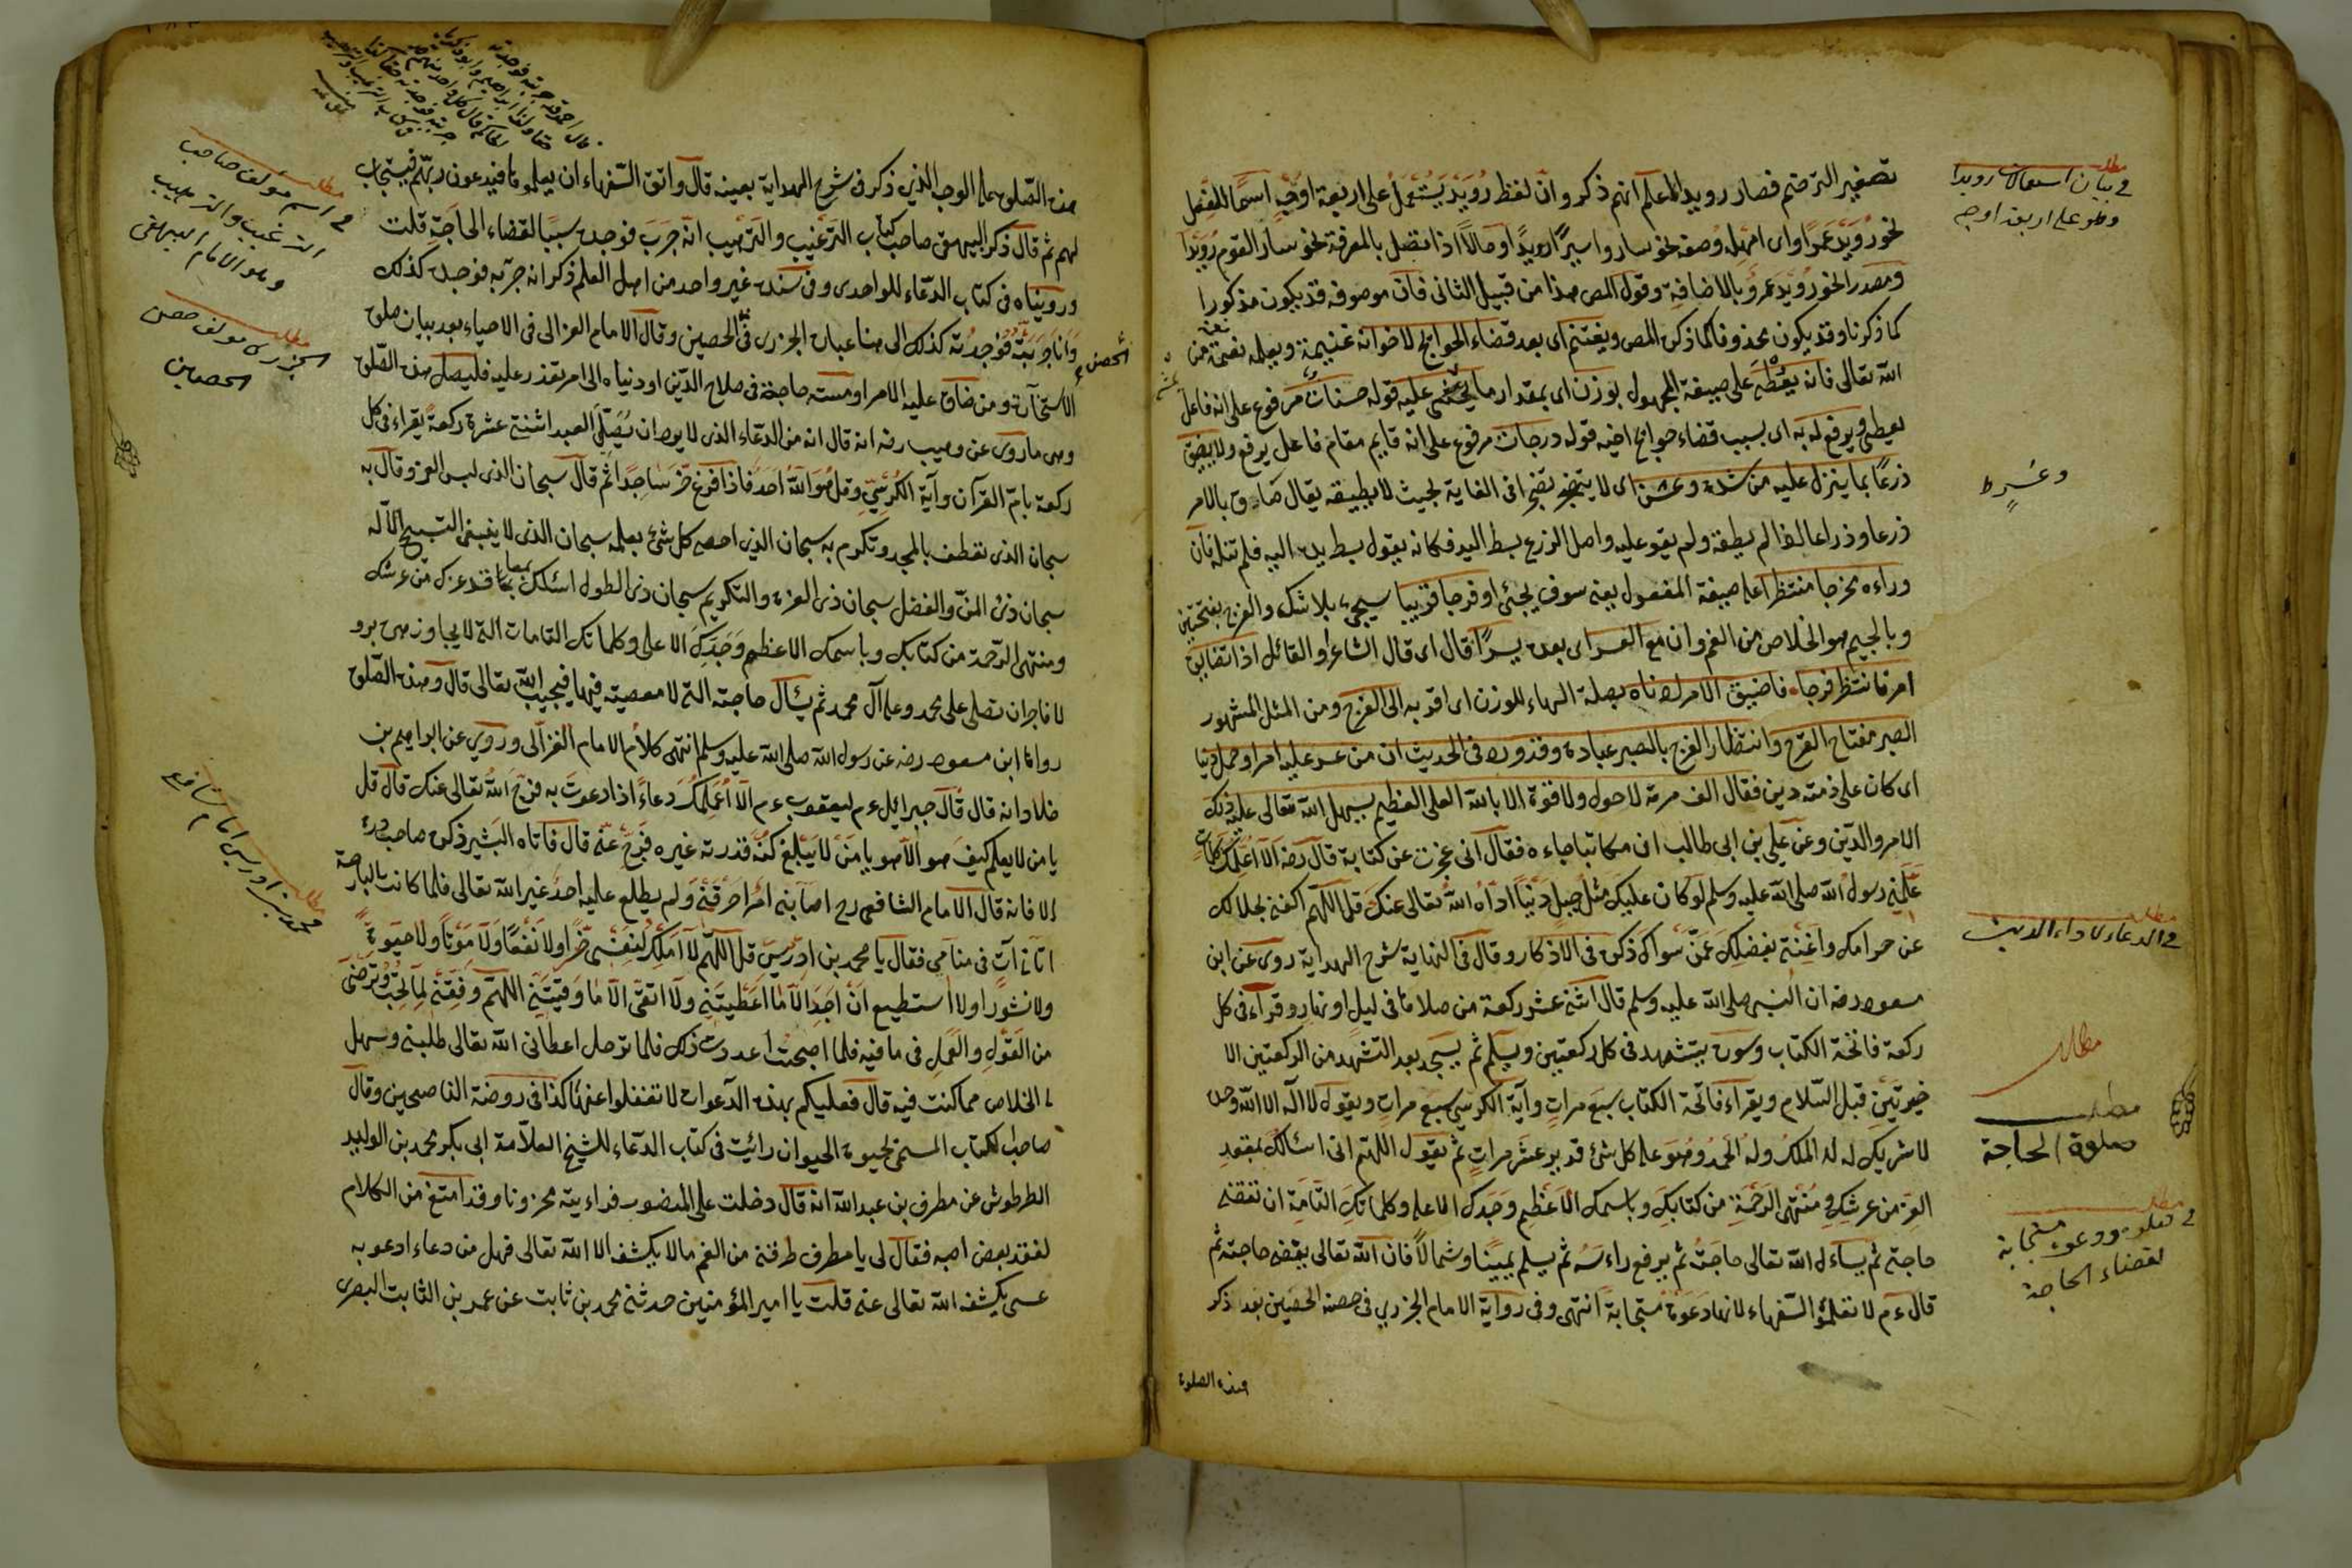 تصغير الترخيم فصار رويدا اعلم انهم ذكروا ان لفظ رُوَيْدَ يُسْتَعْمَلُ على اربعة اوجه اسمًا للفعل
نحو رُوَيْدَ عَمْرًا اى امْهِلْه وصفة نحو ساروا سيرًا رويدًا وحالًا اذا اتصل بالمعرفة نحو سار القوم رُوَيْدًا
ومصدرا نحو رُوَيْدَ عَمْرٍو بالاضافة وقول المص هذا من قبيل الثانى فان موصوفه قد يكون مذكورا
كما ذكرنا وقد يكون محذوفا كما ذكره المص ويغتنم اى بعد قضاء الحوايج لاخوانه غنيمة ويعلمه نعمة من
الله تعالى فانه يُعْطَى على صيغة المجهول بوزن اى بمقدار ما عليه قوله حسنات مرفوع على انه فاعل
يعطى ويرفع له به اى بسبب قضاء حوايج اخيه قوله درجات مرفوع على انه قايم مقام فاعل يرفع ولا يضيق
ذرعًا بما ينزل عليه من شدة وعسر اى لا يتضجر تضجرا فى الغاية بحيث لا يطيقه يقال ضاق بالامر
ذرعا وذراعا اذا لم يطقه ولم يقو عليه واصل الذرع بسط اليد فكانه يقول بسط يده اليه فلم تنله بان
وراءه مخرجا منتظرا على صيغة المفعول يعنى سوف يجئ او فرجا قريبا سيجئ بلا شك والفرج بفتحتين
وبالجيم هو الخلاص من الغم وان مع العسر اى بعده يسرًا قال اى قال الشاعر والقائل اذا تضايق
امر فانتظر فرجا فاضيق الامر ادناه بصلة الهاء للوزن اى اقربه الى الفرج ومن المثل المشهور
الصبر مفتاح الفرج وانتظار الفرج بالصبر عبادة وقد ورد فى الحديث ان من عسر عليه امر او حمل دينا
اى كان على ذمته دين فقال الف مرة لا حول ولا قوة الا بالله العلى العظيم يسهل الله تعالى عليه ذلك
الامر والدين وعن علي بن ابى طالب ان مكاتبا جاءه فقال انى عجزت عن كتابة قال رضه الا اعلمك كلمات
علّمنيه رسول الله صلى الله عليه وسلم لو كان عليك مثل جبل دَيْنًا ادّاهُ اللهُ تعالى عنك قل اللهم اكفنى بحلالك
عن حرامك واغننى بفضلك عمّن سواك ذكره فى الاذكار وقال فى النهاية شرح الهداية روى عن ابن
مسعود رضه ان النبى صلى الله عليه وسلم قال اثنى عشر ركعة من صلاها فى ليل او نهار وقراء فى كل
ركعة فاتحة الكتاب وسورة يتشهد فى كل ركعتين ويسلم ثم يسجد بعد التشهد من الركعتين الا
خيرتين قبل السلام ويقراء فاتحة الكتاب سبع مرات وآية الكرسي سبع مرات ويقول لا اله الا الله وحده
لا شريك له له الملك وله الحمد وهو على كل شئ قدير عشر مرات ثم يقول اللهم انى اسئلك بمقعد
العز من عرشك ومنتهى الرحمة من كتابك وباسمك الاعظم وجدك الاعلى وكلماتك التامة ان تقضى
حاجتى ثم يساءل الله تعالى حاجته ثم يرفع راءسه ثم يسلم يمينا وشمالا فان الله تعالى يقضى حاجته ثم
قال ءم لا تعلموا السفهاء لانها دعوة مستجابة انتهى وفى رواية الامام الجزري فى حصنه الحصين بعد ذكر
هذه الصلوة
مطلب
فى بيان استعمالات رويدا
وهو على اربعة اوجه
وعُسْرٍ ط
مطلب
فى الدعاء لاداء الدين
مطلب
مطلب
صلوة الحاجة
مطلب
فى صلوة ودعوة مستجابة
لقضاء الحاجة
هذه الصلوة على الوجه الذى ذكر فى شرح الهداية بعينه قال واتق السفهاء ان يعلموها فيدعون ربهم فيستجاب
لهم ثم قال ذكر البيهقى صاحب كتاب الترغيب والترهيب انه جرب فوجده سببًا لقضاء الحاجة قلت
ورويناه فى كتاب الدعاء للواحدى وفى سنده غير واحد من اهل العلم ذكر انه جربه فوجده كذلك
وانا جربته فوجدته كذلك الى هنا عبارة الجزرى فى الحصين وقال الامام الغزالى فى الاحياء بعد بيان صلوة
الاستخارة ومن ضاق عليه الامر او مسته حاجة فى صلاح الدين او دنياه الى امر تعذر عليه فليصل هذه الصلوة
وهى ما روى عن وهيب رضه انه قال انه من الدعاء الذى لا يرد ان يصلى العبد اثنتى عشرة ركعة يقراء فى كل
ركعة بام القرآن وآية الكرسي وقل هو الله احد فاذا فرغ خر ساجدًا ثم قال سبحان الذى لبس العز وقال به
سبحان الذى تعطف بالمجد وتكرم به سبحان الذى احصى كل شئ بعلمه سبحان الذى لا ينبغى التسبيح الا له
سبحان ذى المن والفضل سبحان ذى العزة والتكريم سبحان ذى الطول اسئلك بمعاقد عزك من عرشك
ومنتهى الرحمة من كتابك وباسمك الاعظم وجدك الاعلى وكلماتك التامات التى لا يجاوزهن بر و
لا فاجر ان تصلى على محمد وعلى آل محمد ثم يسأل حاجته التى لا معصية فيها فيجيب الله تعالى قال وهذه الصلوة
رواها ابن مسعود رضه عن رسول الله صلى الله عليه وسلم انتهى كلام الامام الغزالى وروي عن ابراهيم بن
خلاد انه قال قال جبرائيل ءم ليعقوب ءم الا اعلمك دعاءً اذا دعوت به فرج الله تعالى عنك قال قل
يا من لا يعلم كيف هو الا هو يا من لا يبلغ كنه قدرته غيره فرج عنى قال فاتاه البشير ذكره صاحب
الا فانه قال الامام الشافعى رح اصابنى امر احرقنى ولم يطلع عليه احد غير الله تعالى فلما كانت البارحة
اتانى آت فى منامى فقال يا محمد بن ادريس قل اللهم لا املك لنفسى ضرا ولا نفعا ولا موتا ولا حيوة
ولا نشورا ولا استطيع ان اجد الا ما اعطيتنى ولا اتقى الا ما وقيتنى اللهم وفقنى لما تحب وترضى
من القول والعمل فى عافية فلما اصبحت اعددت ذلك فلما ترحل اعطانى الله تعالى طلبتى وسهل
لى الخلاص مما كنت فيه قال فعليكم بهذه الدعوات لا تغفلوا عنها كذا فى روضة الناصحين وقال
صاحب الكتاب المسمى بحيوة الحيوان رائيت فى كتاب الدعاء للشيخ العلامة ابى بكر محمد بن الوليد
الطرطوشى عن مطرف بن عبد الله انه قال دخلت على المنصور فراءيته محزونا وقد امتنع من الكلام
لفقد بعض احبه فقال لى يا مطرف طرقنى من الغم ما لا يكشفه الا الله تعالى فهل من دعاء ادعو به
عسى يكشفه الله تعالى عنى قلت يا امير المؤمنين حدثنى محمد بن ثابت عن عمر بن الثابت البصرى
مطلب
فى اسم مؤلف صاحب
الترغيب والترهيب
وهو الامام البيهقى
مطلب
الجزرى مؤلف حصن
الحصين
الحصن
مطلب
محمد بن ادريس امام شافعى